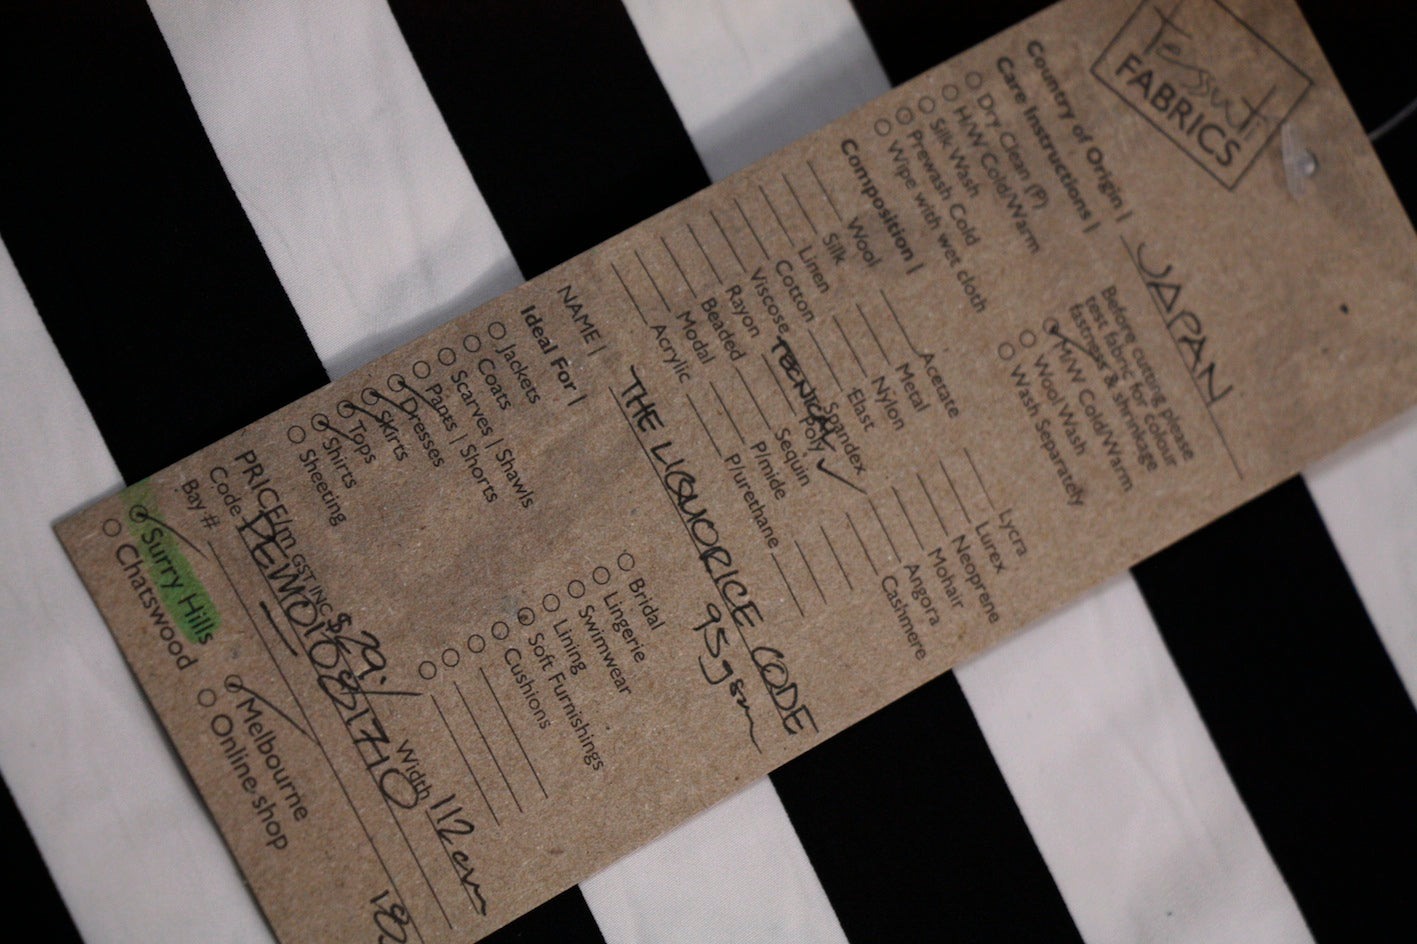 Tessuti
FABRICS
Country of Origin | JAPAN
Care Instructions |
Before cutting please
test fabric for colour
fastness & shrinkage
Dry Clean (P)
H/W Cold/Warm
Silk Wash
Prewash Cold
Wipe with wet cloth
M/W Cold/Warm
Wool Wash
Wash Separately
Composition |
Wool
Silk
Linen
Cotton
Viscose
Rayon
Beaded
Modal
Acrylic
Acetate
Metal
Nylon
Elast
Spandex
TECNICAL Poly ✓
Sequin
P/mide
P/urethane
Lycra
Lurex
Neoprene
Mohair
Angora
Cashmere
NAME | THE LIQUORICE CODE
95gsm
Ideal For |
Jackets
Coats
Scarves | Shawls
Pants | Shorts
Dresses
Skirts
Tops
Shirts
Sheeting
Bridal
Lingerie
Swimwear
Lining
Soft Furnishings
Cushions
PRICE/m GST INC $29./ Width 112cm
Code
Bay #
Surry Hills
Chatswood
Melbourne
Online shop